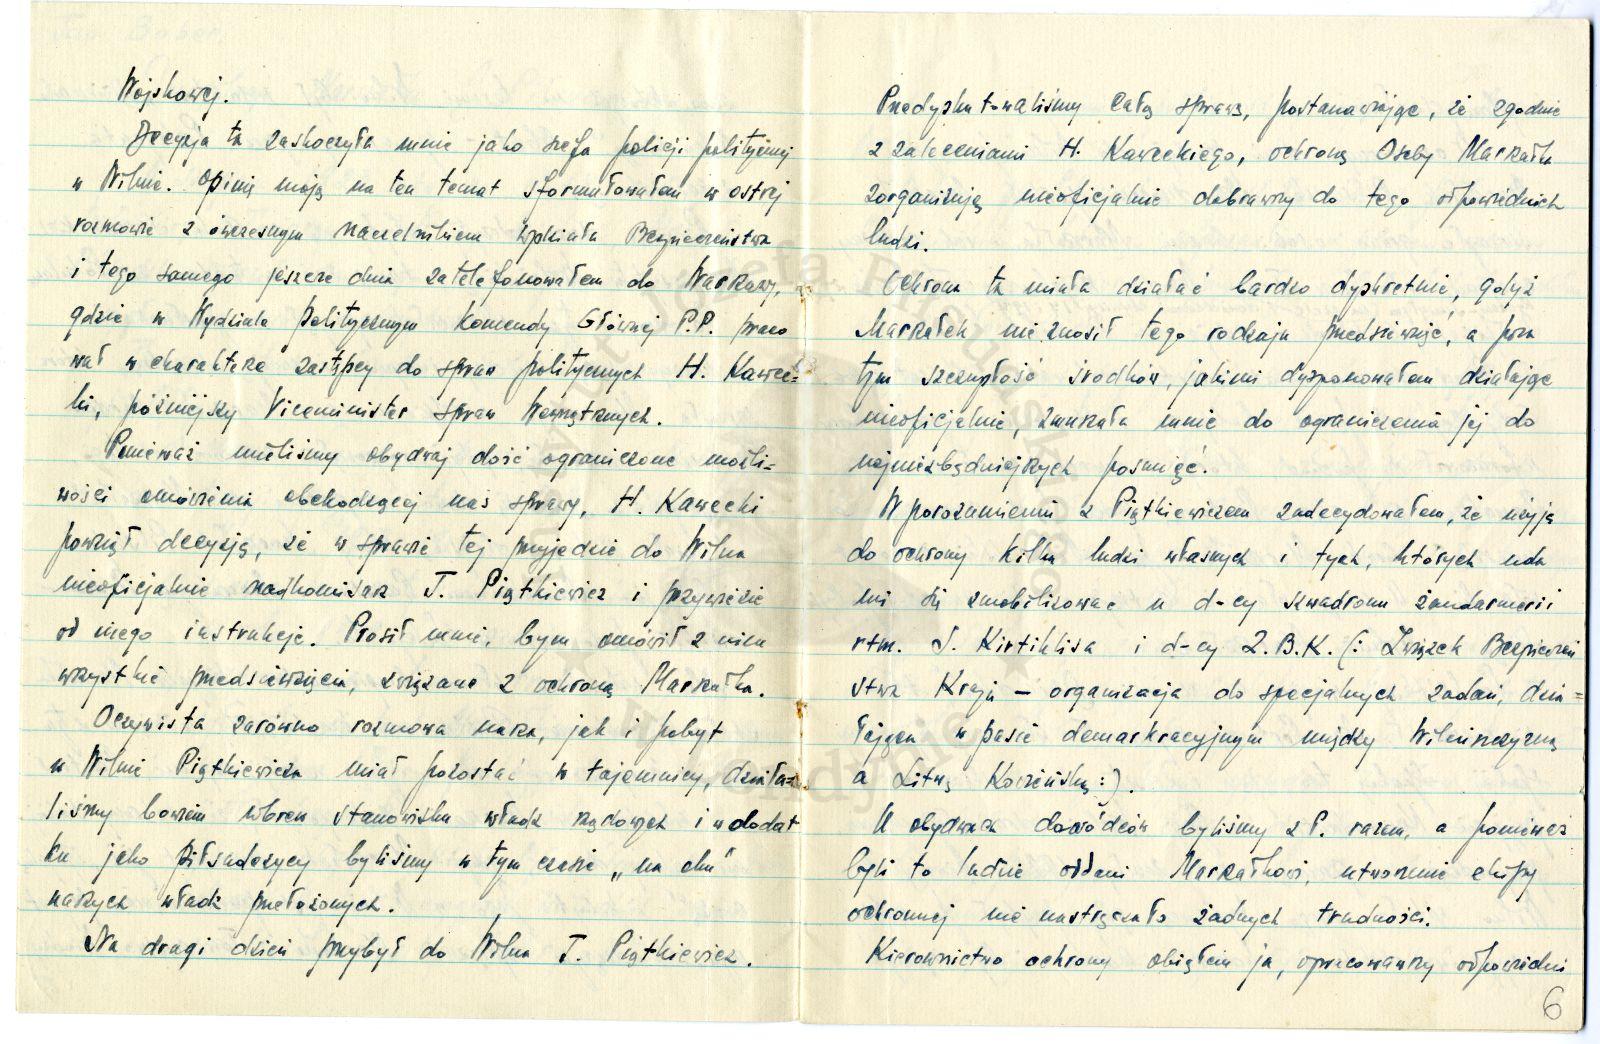 Wojskowej.
Decyzja ta zaskoczyła mnie jako szefa policji politycznej
w Wilnie. Opinię moją na ten temat sformułowałem w ostrej
rozmowie z ówczesnym naczelnikiem Wydziału Bezpieczeństwa
i tego samego jeszcze dnia zatelefonowałem do Warszawy,
gdzie w Wydziale Politycznym Komendy Głównej P.P. praco
wał w charakterze zastępcy do spraw politycznych H. Kawec=
ki, późniejszy Viceminister Spraw Wewnętrznych.
Ponieważ mieliśmy obydwaj dość ograniczone możli=
wości omówienia obchodzącej nas sprawy, H. Kawecki
powziął decyzję, że w sprawie tej przyjedzie do Wilna
nieoficjalnie nadkomisarz T. Piątkiewicz i przywiezie
od niego instrukcje. Prosił mnie, bym omówił z nim
wszystkie przedsięwzięcia, związane z ochroną Marszałka.
Oczywista zarówno rozmowa nasza, jak i pobyt
w Wilnie Piątkiewicza miał pozostać w tajemnicy, działa=
liśmy bowiem wbrew stanowisku władz rządowych i w dodat
ku jako piłsudczycy byliśmy w tym czasie „na oku"
naszych władz przełożonych.
Na drugi dzień przybył do Wilna T. Piątkiewicz.
Przedyskutowaliśmy całą sprawę, postanawiając, że zgodnie
z zaleceniami H. Kaweckiego, ochronę Osoby Marszałka
zorganizuję nieoficjalnie dobrawszy do tego odpowiednich
ludzi.
Ochrona ta miała działać bardzo dyskretnie, gdyż
Marszałek nie znosił tego rodzaju przedsięwzięć, a poza
tym szczupłość środków, jakimi dysponowałem działając
nieoficjalnie, zmuszała mnie do ograniczenia jej do
najniezbędniejszych posunięć.
W porozumieniu z Piątkiewiczem zadecydowałem, że użyję
do ochrony kilku ludzi własnych i tych, których uda
mi się zmobilizować u d-cy szwadronu żandarmerii
rtm. J. Kirtiklisa i d-cy Z.B.K. (: Związek Bezpieczeń
stwa Kraju – organizacja do specjalnych zadań, dzia=
łająca w pasie demarkacyjnym między Wileńszczyzną
a Litwą Kowieńską :).
U obydwuch dowódców byliśmy z P. razem, a ponieważ
byli to ludzie oddani Marszałkowi, utworzenie ekipy
ochronnej nie nastręczało żadnych trudności.
Kierownictwo ochrony objąłem ja, opracowawszy odpowiedni
6